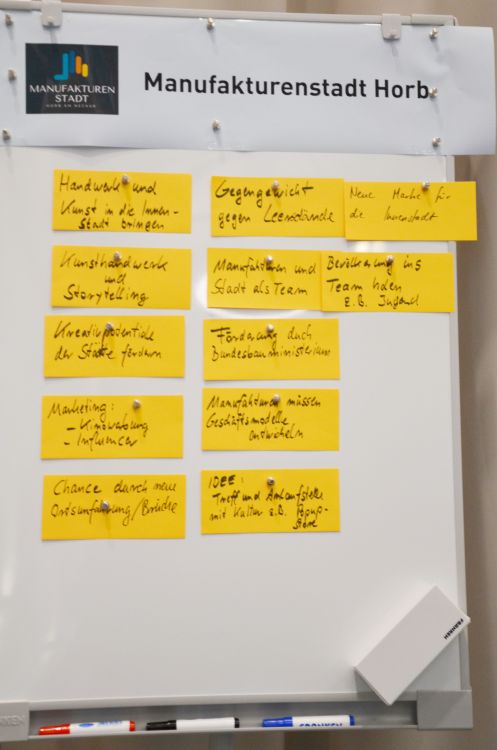 MANUFAKTUREN
STADT
HORB AM NECKAR
Manufakturenstadt Horb
Handwerk und
Kunst in die Innen-
Stadt bringen
Gegengewicht
gegen Leerstände
Neue Marke für
die Innenstadt
Kunsthandwerk
und
Storytelling
Manufakturen und
Stadt als Team
Bevölkerung ins
Team holen
z.B. Jugend
Kreativpotentiale
der Städte fördern
Förderung durch
Bundesbauministerium
Marketing:
- Kinowerbung
- Influencer
Manufakturen müssen
Geschäftsmodelle
entwickeln
Chance durch neue
Ortsumfahrung/Brücke
IDEE:
Treff und Anlaufstelle
mit Kultur z.B. Popup-
Store
FRANKEN